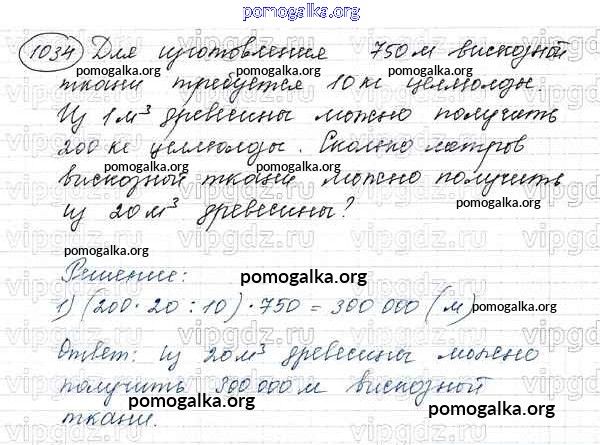 pomogalka.org
1034 Для изготовления 750 м вискозной
pomogalka.org pomogalka.org
ткани требуется 10 кг целлюлозы.
Из 1 м³ древесины можно получить
200 кг целлюлозы. Сколько метров
pomogalka.org pomogalka.org
вискозной ткани можно получить
из 20 м³ древесины?
pomogalka.org
vipgdz.ru vipgdz.ru vipgdz.ru
pomogalka.org
Решение:
pomogalka.org
1) (200 · 20 : 10) · 750 = 300 000 (м)
pomogalka.org
Ответ: из 20 м³ древесины можно
получить 300 000 м вискозной
pomogalka.org
ткани.
pomogalka.org